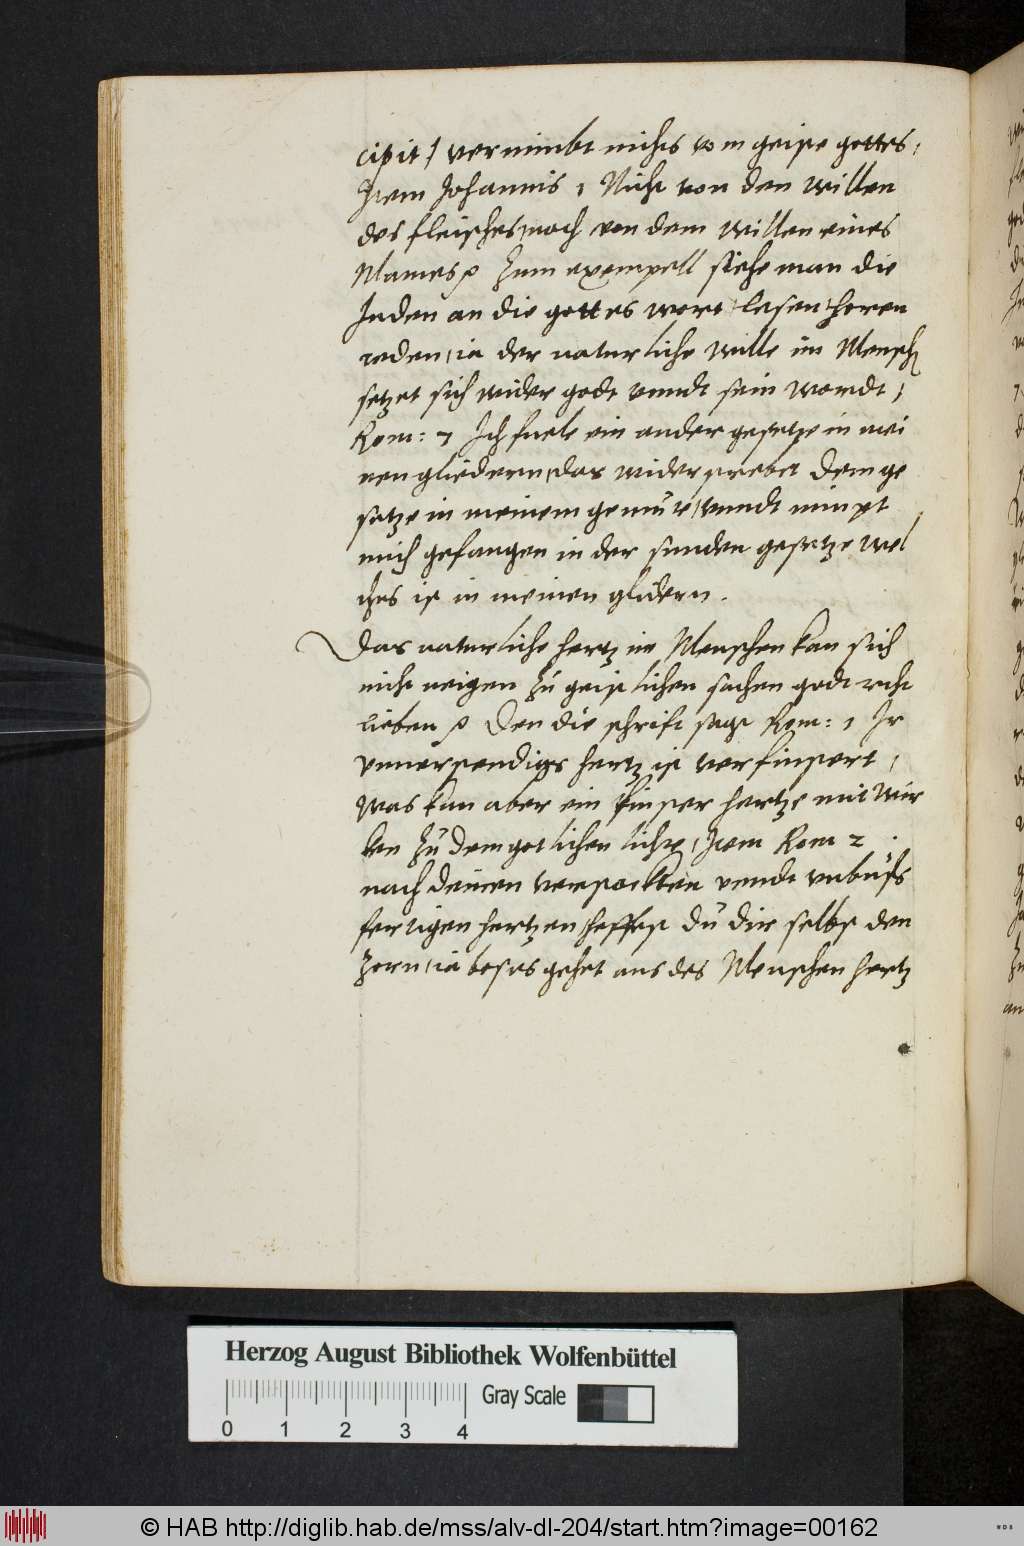 cipit) vernimbt nichts vom geiste gottes,
Item Johannis 1 Nicht von den willen
des fleisches, noch von dem willen eines
Mannes Zum exempell siehe man die
Juden an die gottes wort, lesen, horen
reden, ia der naturliche wille im Mensch
setzet sich wider godt vnndt sein wordt,
Rom: 7 Ich fuele ein ander gesetze in mei
nen gliedern, das widerstrebet dem ge
setze in meinem gemüte, vnndt nimpt
mich gefangen in der sunden gesetze wel
ches ist in meinen glidern.
Das naturliche hertz im Menschen kan sich
nicht neigen zu geistlichen sachen godt recht
lieben Den die schrift sagt Rom: 1 Ir
vnuerstendigs hertz ist verfinstert,
Was kan aber ein finster hertze mit wir
ken zu dem gotlichen lichte, Item Rom 2
nach deinen verstockten vnndt vnbuß
fertigen hertzen, heffest du dir selbst den
zorn, ia boses gehet aus des Menschen hertz
Herzog August Bibliothek Wolfenbüttel
Gray Scale
0 1 2 3 4
© HAB http://diglib.hab.de/mss/alv-dl-204/start.htm?image=00162